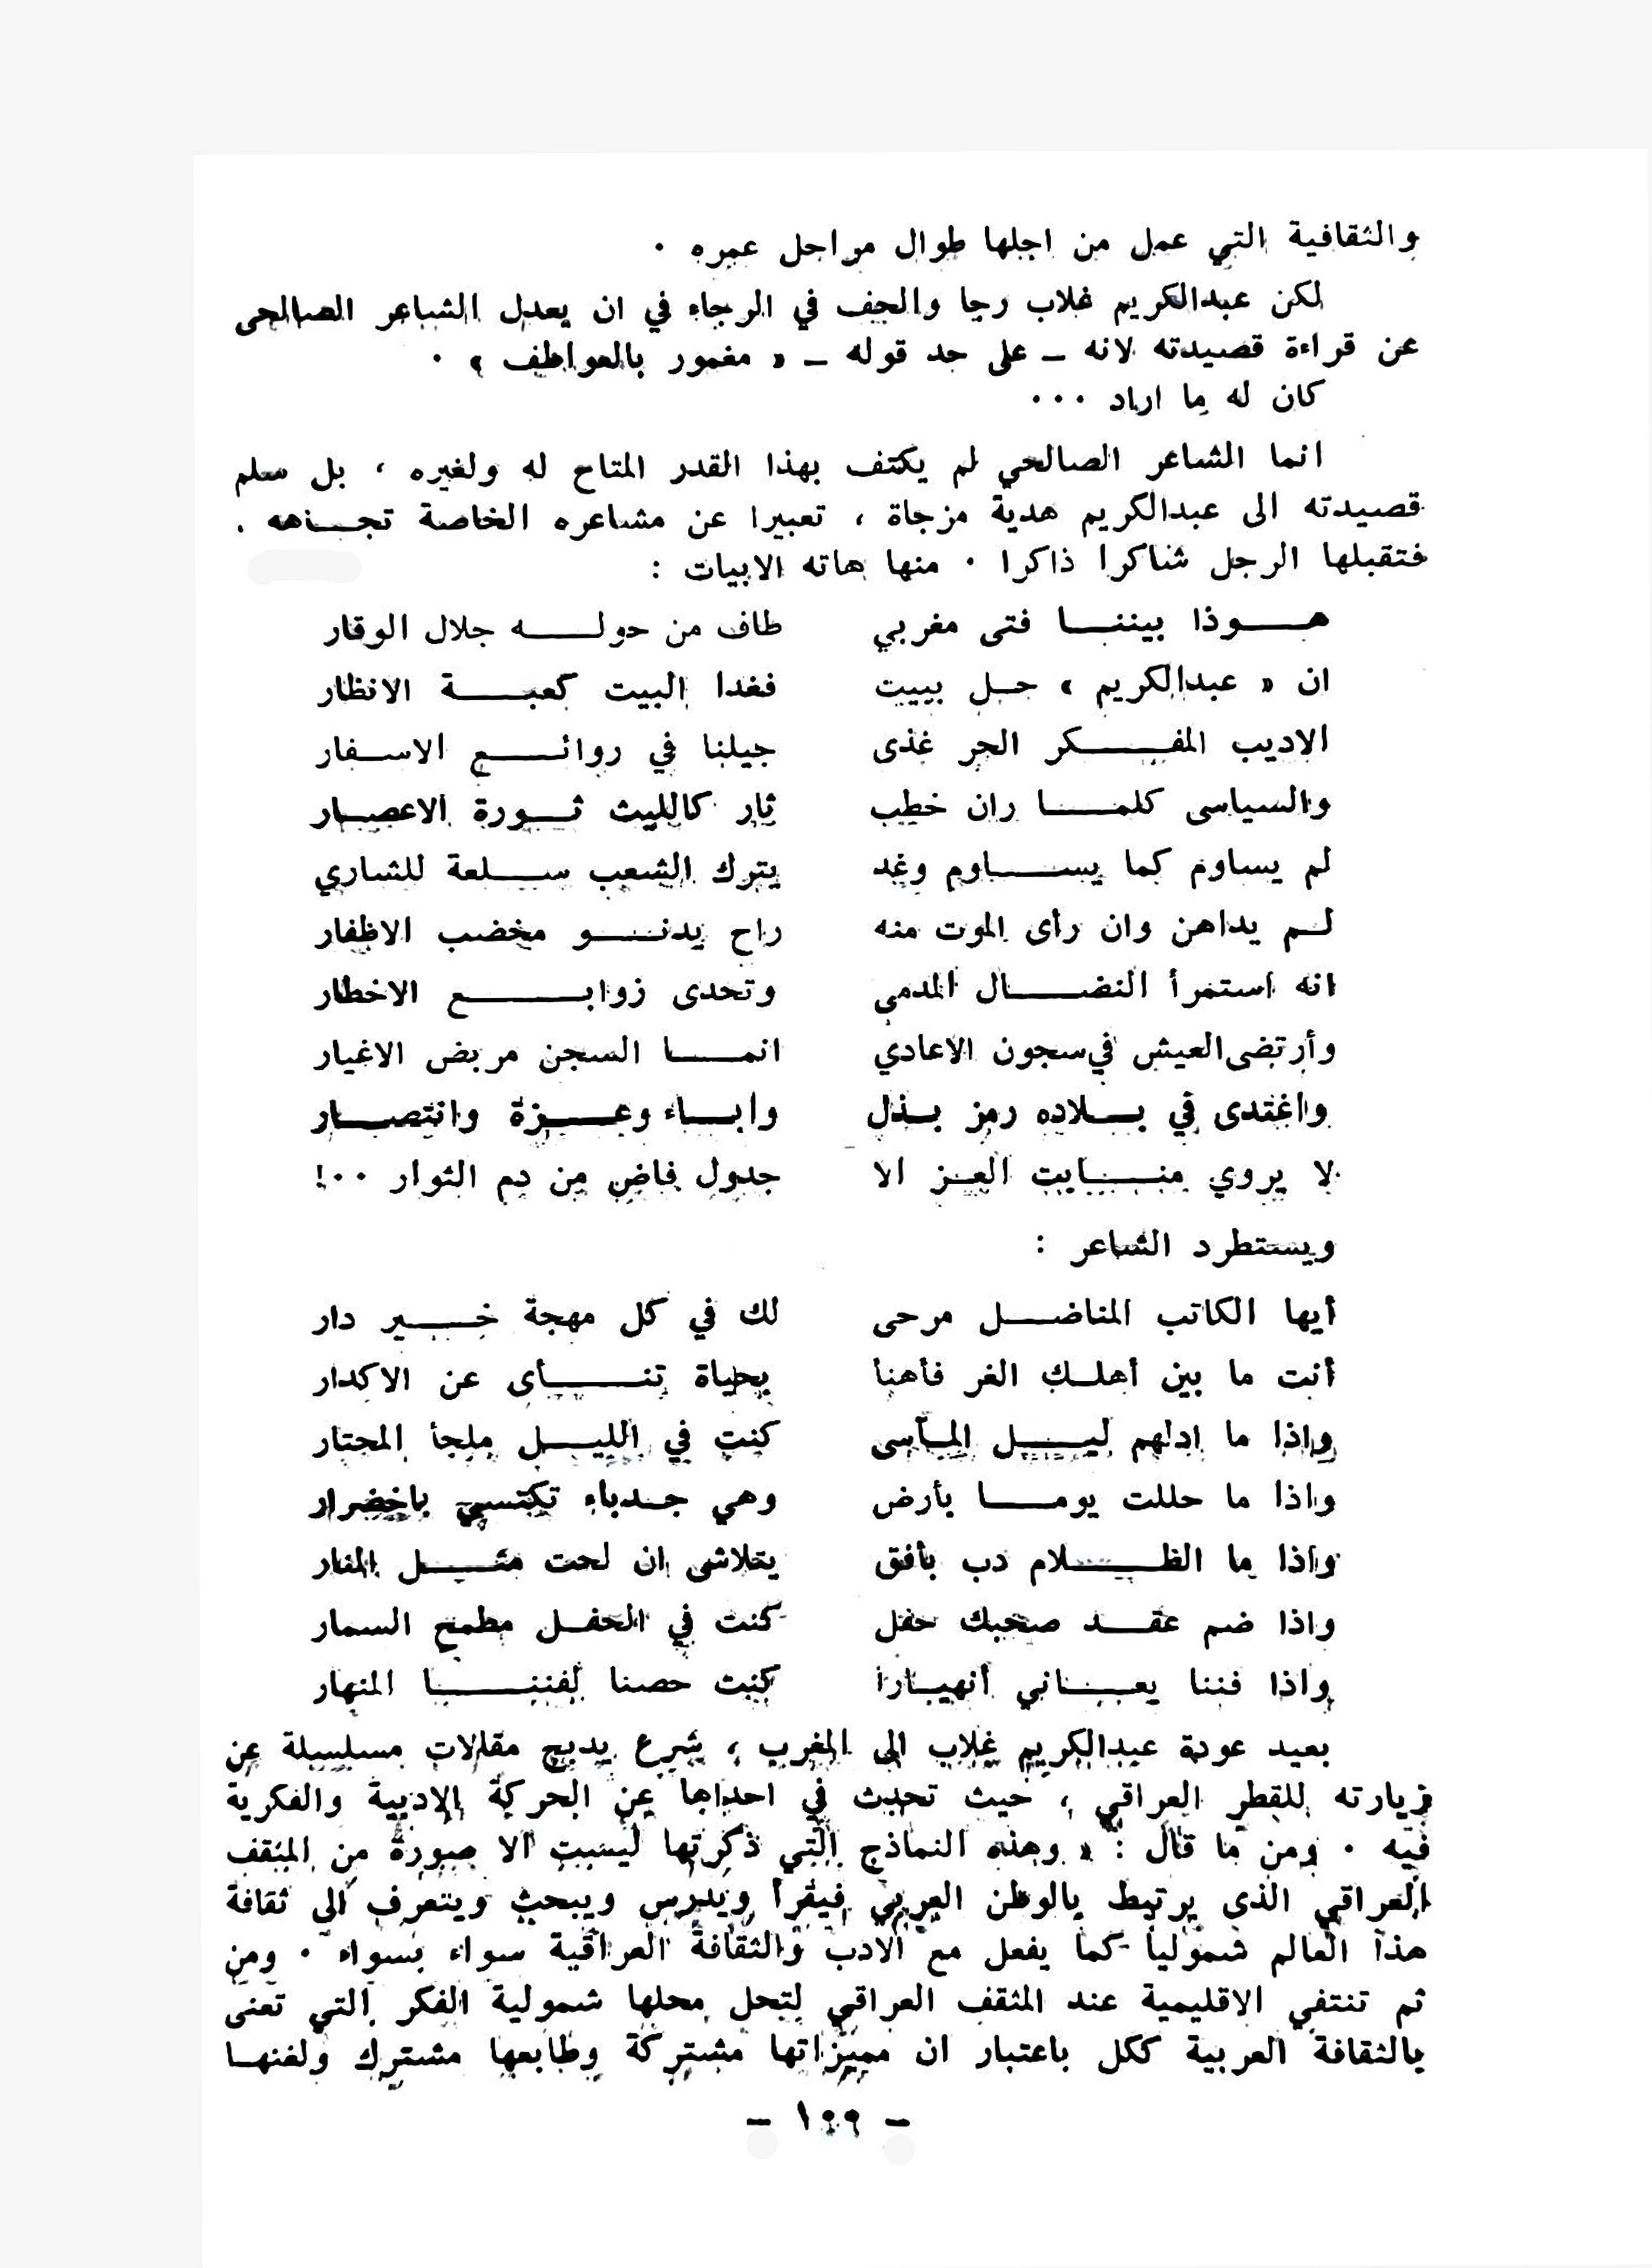 والثقافية التي عمل من اجلها طوال مراحل عمره .
لكن عبدالكريم غلاب رجا والحف في الرجاء في ان يعدل الشاعر الصالحى
عن قراءة قصيدته لانه ــ على حد قوله ــ « مغمور بالعواطف » .
كان له ما اراد ...
انما الشاعر الصالحي لم يكتف بهذا القدر المتاح له ولغيره ، بل سلم
قصيدته الى عبدالكريم هدية مزجاة ، تعبيرا عن مشاعره الخاصة تجاهه .
فتقبلها الرجل شاكرا ذاكرا . منها هاته الابيات :
هوذا بيننا فتى مغربي طاف من حوله جلال الوقار
ان « عبدالكريم » حل ببيت فغدا البيت كعبة الانظار
الاديب المفكر الحر غذى جيلنا في روائع الاسفار
والسياسى كلما ران خطب ثار كالليث ثورة الاعصار
لم يساوم كما يساوم وغد يترك الشعب سلعة للشاري
لم يداهن وان رأى الموت منه راح يدنو مخضب الاظفار
انه استمرأ النضال المدمي وتحدى زوابع الاخطار
وأرتضى العيش في سجون الاعادي انما السجن مربض الاغيار
واغتدى في بلاده رمز بذل واباء وعزة وانتصار
لا يروي منابت العز الا جدول فاض من دم الثوار ..!
ويستطرد الشاعر :
أيها الكاتب المناضل مرحى لك في كل مهجة خير دار
أنت ما بين أهلك الغر فأهنأ بحياة تنأى عن الاكدار
واذا ما ادلهم ليل المآسى كنت في الليل ملجأ المحتار
واذا ما حللت يوما بأرض وهي جدباء تكتسي باخضرار
واذا ما الظلام دب بأفق يتلاشى ان لحت مثل المنار
واذا ضم عقد صحبك حفل كنت في الحفل مطمح السمار
واذا فننا يعاني أنهيارا كنت حصنا لفننا المنهار
بعيد عودة عبدالكريم غلاب الى المغرب ، شرع يدبج مقالات مسلسلة عن
زيارته للقطر العراقي ، حيث تحدث في احداها عن الحركة الادبية والفكرية
فيه . ومن ما قال : « وهذه النماذج التي ذكرتها ليست الا صورة من المثقف
العراقي الذى يرتبط بالوطن العربي فيقرأ ويدرس ويبحث ويتعرف الى ثقافة
هذا العالم شموليا كما يفعل مع الادب والثقافة العراقية سواء بسواء . ومن
ثم تنتفي الاقليمية عند المثقف العراقي لتحل محلها شمولية الفكر التي تعنى
بالثقافة العربية ككل باعتبار ان مميزاتها مشتركة وطابعها مشترك ولغتها